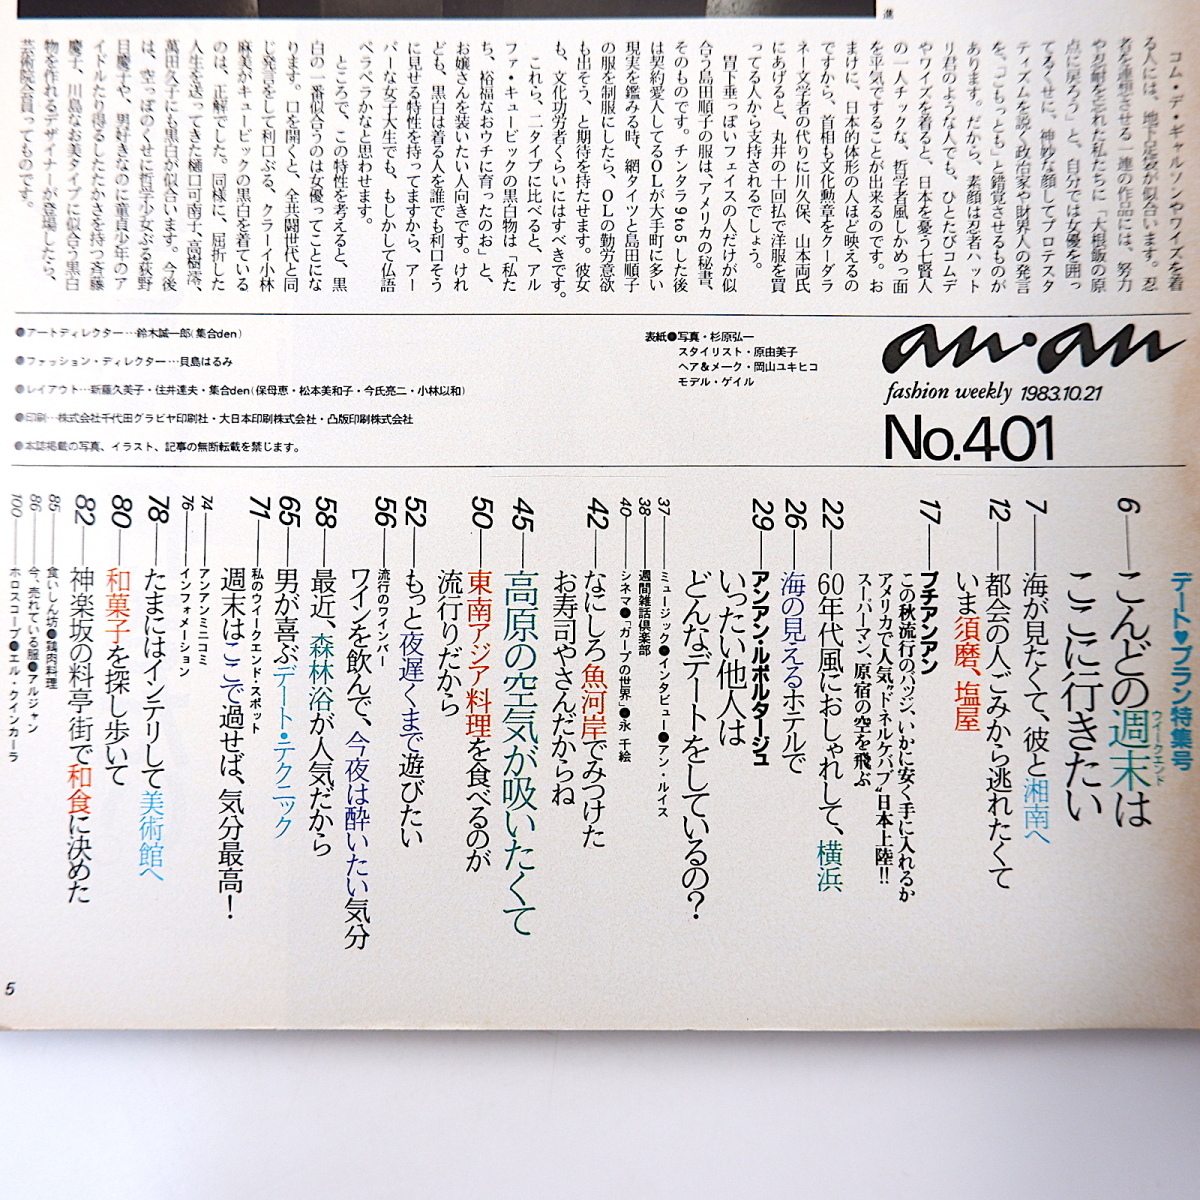 コム・デ・ギャルソンやワイズを着
る人には、地下足袋が似合います。忍
者を連想させる一連の作品には、努力
や忍耐を忘れた私たちに「大根飯の原
点に戻ろう」と、自分では女優を囲っ
てるくせに、神妙な顔してプロテスタ
ティズムを説く政治家や財界人の発言
を、「ごもっとも」と錯覚させるものが
あります。だから、素顔は忍者ハット
リ君のような人でも、ひとたびコムデ
やワイズを着ると、日本を憂う七賢人
の一人チックな、哲学者風しかめっ面
を平気ですることが出来るのです。お
まけに、日本的体形の人ほど映えるの
ですから、首相も文化勲章をクーダラ
ネー文学者の代りに川久保、山本両氏
にあげると、丸井の十回払で洋服を買
ってる人から支持されるでしょう。
胃下垂っぽいフェイスの人だけが似
合う島田順子の服は、アメリカの秘書、
そのものです。チンタラ9to5した後
は契約愛人してるOLが大手町に多い
現実を鑑みる時、網タイツと島田順子
の服を制服にしたら、OLの勤労意欲
も出そう、と期待を持たせます。彼女
も、文化功労者くらいにはすべきです。
これら、二タイプに比べると、アル
ファ・キュービックの黒白物は「私た
ち、裕福なおウチに育ったのお」と、
お嬢さんを装いたい人向きです。けれ
ども、黒白は着る人を誰でも利口そう
に見せる特性を持ってますから、アー
パーな女子大生でも、もしかして仏語
ペラペラかなと思わせます。
ところで、この特性を考えると、黒
白の一番似合うのは女優ってことにな
ります。口を開くと、全共闘世代と同
じ発言をして利口ぶる、クラーイ小林
麻美がキュービックの黒白を着ている
のは、正解でした。同様に、屈折した
人生を送ってきた樋口可南子、高樹澪、
萬田久子にも黒白が似合います。今後
は、空っぽのくせに哲学少女ぶる荻野
目慶子や、男好きなのに童貞少年のア
イドルたり得るしたたかさを持つ斉藤
慶子、川島なお美タイプに似合う黒白
物を作れるデザイナーが登場したら、
芸術院会員ってものです。
●アートディレクター…鈴木誠一郎(集合den)
●ファッション・ディレクター…貝島はるみ
●レイアウト…新藤久美子・住井達夫・集合den(保母恵・松本美和子・今氏亮二・小林以和)
●印刷…株式会社千代田グラビヤ印刷社・大日本印刷株式会社・凸版印刷株式会社
●本誌掲載の写真、イラスト、記事の無断転載を禁じます。
表紙●写真・杉原弘一
スタイリスト・原由美子
ヘア&メーク・岡山ユキヒコ
モデル・ゲイル
an・an
fashion weekly 1983.10.21
No.401
デート♥プラン特集号
6 こんどの週末は
ウイークエンド
ここに行きたい
7 海が見たくて、彼と湘南へ
12 都会の人ごみから逃れたくて
いま須磨、塩屋
17 プチアンアン
この秋流行のバッジ、いかに安く手に入れるか
アメリカで人気“ドネルケバブ”日本上陸!!
スーパーマン、原宿の空を飛ぶ
22 60年代風におしゃれして、横浜
26 海の見えるホテルで
29 アンアン・ルポルタージュ
いったい他人は
どんなデートをしているの?
37 ミュージック●インタビュー●アン・ルイス
38 週間雑話倶楽部
40 シネマ●「ガープの世界」●永 千絵
42 なにしろ魚河岸でみつけた
お寿司やさんだからね
45 高原の空気が吸いたくて
50 東南アジア料理を食べるのが
流行りだから
52 もっと夜遅くまで遊びたい
56 流行のワインバー
ワインを飲んで、今夜は酔いたい気分
58 最近、森林浴が人気だから
65 男が喜ぶデート・テクニック
71 私のウイークエンド・スポット
週末はここで過せば、気分最高!
74 アンアンミニコミ
76 インフォメーション
78 たまにはインテリして美術館へ
80 和菓子を探し歩いて
82 神楽坂の料亭街で和食に決めた
85 食いしん坊●鶏肉料理
86 今、売れている服●アルジャン
100 ホロスコープ●エル・クインカーラ
5